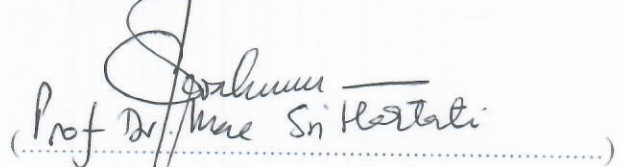 (Prof Dr. Mae Sri Hartati)